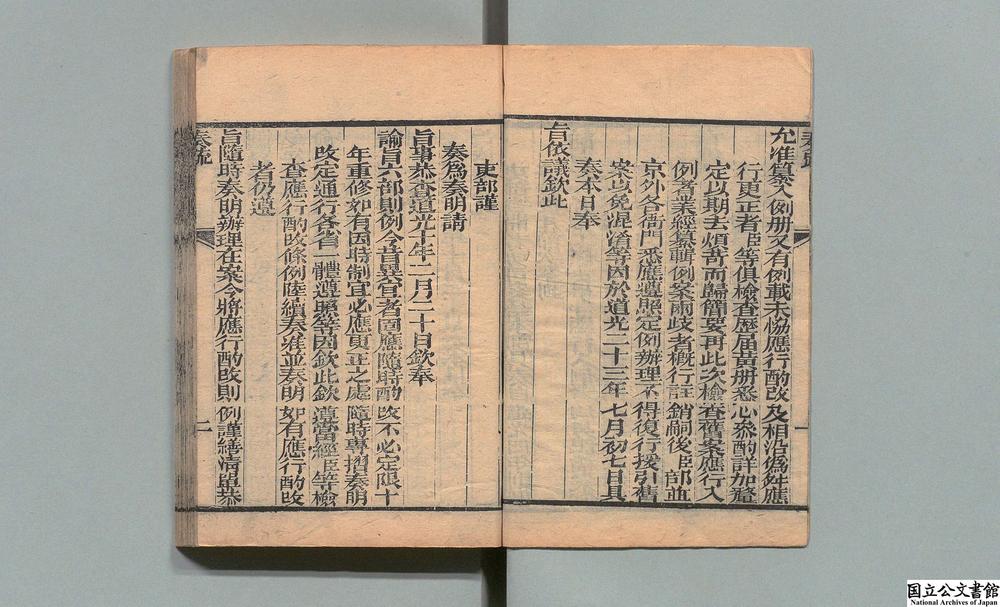 奏疏
允准纂入例册又有例載未恊應行酌改及相沿僞舛應
行更正者臣等俱檢查歷届黄册悉心叅酌詳加釐
定以期去煩苛而歸簡要再此次檢查舊案應行入
例者業經纂輯例案兩歧者槪行註銷嗣後臣部並
京外各衙門悉應遵照定例辦理不得復行援引舊
案以免混淆等因於道光二十三年七月初七日具
奏本日奉
旨依議欽此
一
吏部謹
奏爲奏明請
旨事恭查道光十年二月二十日欽奉
諭旨六部則例今昔異宜者固應隨時酌改不必定限十
年重修如有因時制宜必應更正之處隨時專摺奏明
改定通行各省一體遵照等因欽此欽遵當經臣等檢
查應行酌改條例陸續奏准並奏明如有應行酌改
者仍遵
旨隨時奏明辦理在案今將應行酌改則例謹繕清單恭
奏疏
二
国立公文書館
National Archives of Japan